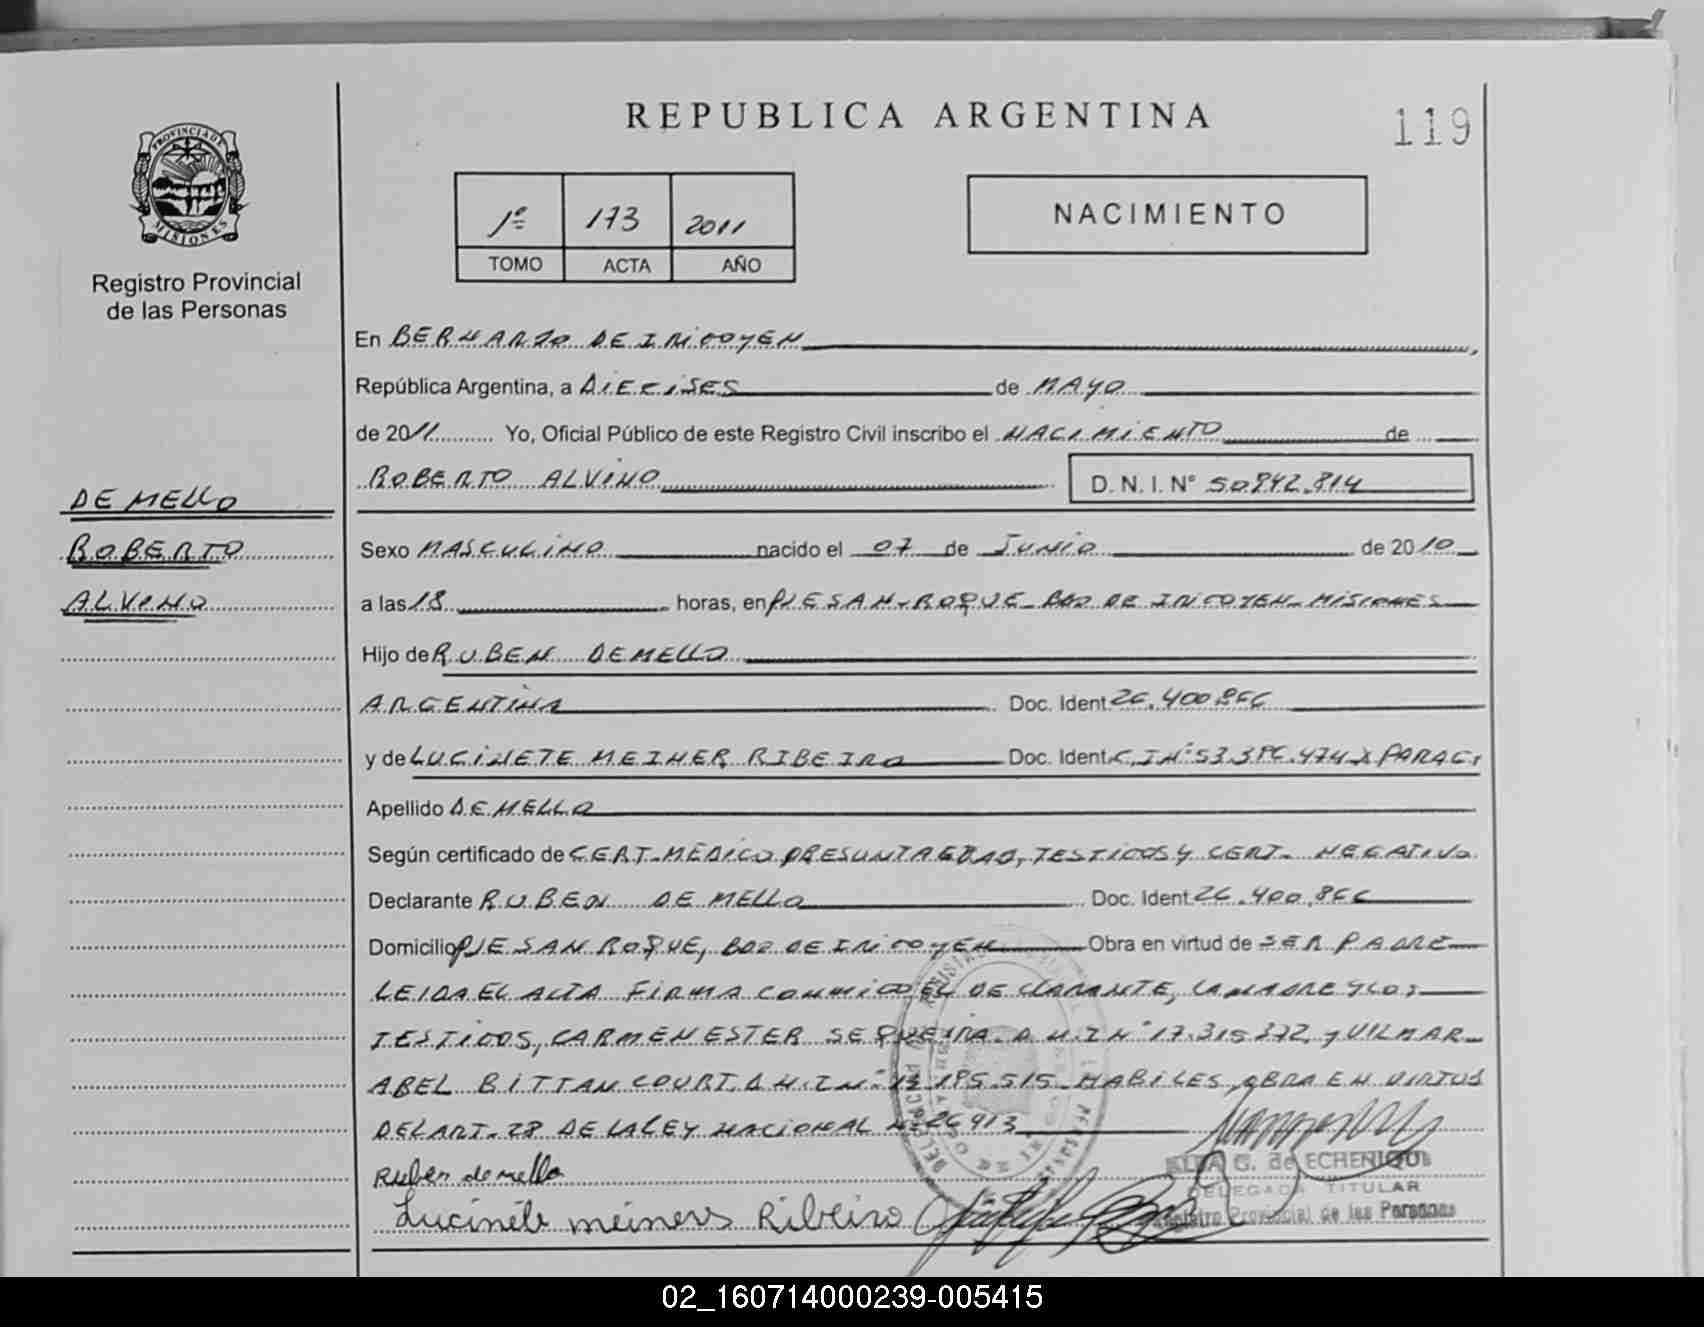 REPUBLICA ARGENTINA
119
PROVINCIA DE
MISIONES
Registro Provincial
de las Personas
1º 173 2011
TOMO ACTA AÑO
NACIMIENTO
En BERNARDO DE IRIGOYEN
República Argentina, a DIECISES de MAYO
de 2011 Yo, Oficial Público de este Registro Civil inscribo el NACIMIENTO de
ROBERTO ALVINO D. N. I. Nº 50.842.814
DE MELLO
ROBERTO
ALVINO
Sexo MASCULINO nacido el 07 de JUNIO de 2010
a las 18 horas, en PJE SAN-ROQUE-BDO DE IRIGOYEN-MISIONES
Hijo de RUBEN DEMELLO
ARGENTINA Doc. Ident 26.400.866
y de LUCINETE MEINER RIBEIRO Doc. Ident. C.I Nº 53.386.474
Apellido DEMELLO
Según certificado de CERT-MEDICO PRESUNTA EDAD, TESTIGOS Y CERT- NEGATIVO
Declarante RUBEN DE MELLO Doc. Ident 26.400.866
Domicilio PJE SAN ROQUE, BDO DE IRIGOYEN Obra en virtud de SER PADRE
LEIDA EL ACTA FIRMA CONMIGO EL DECLARANTE, LA MADRE Y LOS
TESTIGOS, CARMEN ESTER SEQUEIRA D.N.I Nº 17.315.372 y VILMAR
ABEL BITTANCOURT D.N.I Nº 185.515 HABILES, OBRA EN VIRTUD
DEL ART-28 DE LA LEY NACIONAL Nº 26413
Ruben de mello
Lucinete meineres Ribeiro
ALBA G. de ECHENIQUE
DELEGADA TITULAR
Registro Provincial de las Personas
02_160714000239-005415